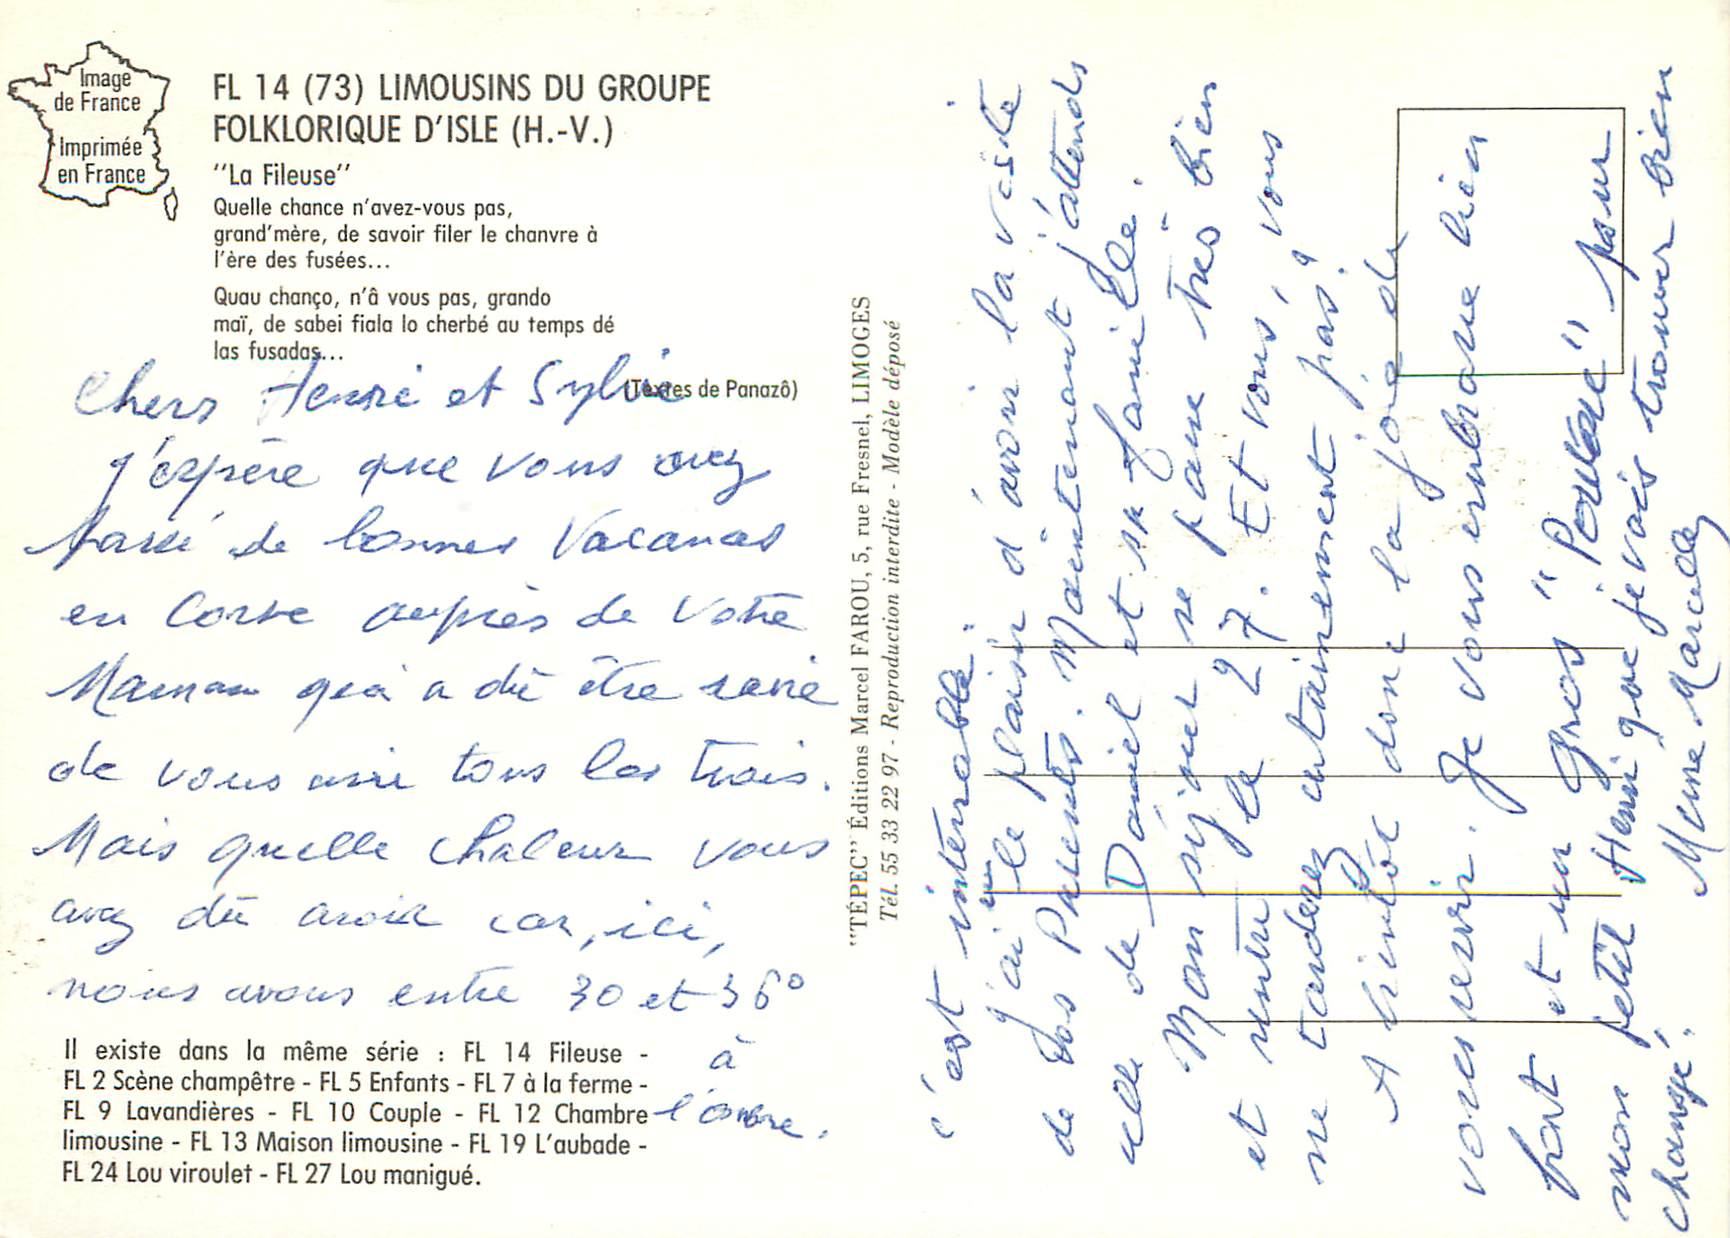 Image
de France
Imprimée
en France
FL 14 (73) LIMOUSINS DU GROUPE
FOLKLORIQUE D'ISLE (H.-V.)
"La Fileuse"
Quelle chance n'avez-vous pas,
grand'mère, de savoir filer le chanvre à
l'ère des fusées...
Quau chanço, n'â vous pas, grando
maï, de sabei fiala lo cherbé au temps dé
las fusadas...
(Textes de Panazô)
Chers Henri et Sylvie
J'espère que vous avez
passé de bonnes Vacances
en Corse auprès de votre
Maman qui a dû être ravie
de vous avoir tous les trois.
Mais quelle chaleur vous
avez dû avoir car, ici,
nous avons entre 30 et 36°
à
l'ombre.
Il existe dans la même série : FL 14 Fileuse -
FL 2 Scène champêtre - FL 5 Enfants - FL 7 à la ferme -
FL 9 Lavandières - FL 10 Couple - FL 12 Chambre
limousine - FL 13 Maison limousine - FL 19 L'aubade -
FL 24 Lou viroulet - FL 27 Lou manigué.
"TÉPEC" Éditions Marcel FAROU, 5, rue Fresnel, LIMOGES
Tél. 55 33 22 97 - Reproduction interdite - Modèle déposé
c'est intenable.
J'ai eu le plaisir d'avoir la visite
de vos Parents. Maintenant j'attends
celle de Daniel et sa famille.
Mon séjour se passe très bien
et rentre le 27. Et vous, vous
ne tarderez certainement pas ?
A bientôt donc la joie de
vous revoir. Je vous embrasse bien
fort et un gros "Poutou" pour
mon petit Henri que je vais trouver bien
changé. Meme Marcelle